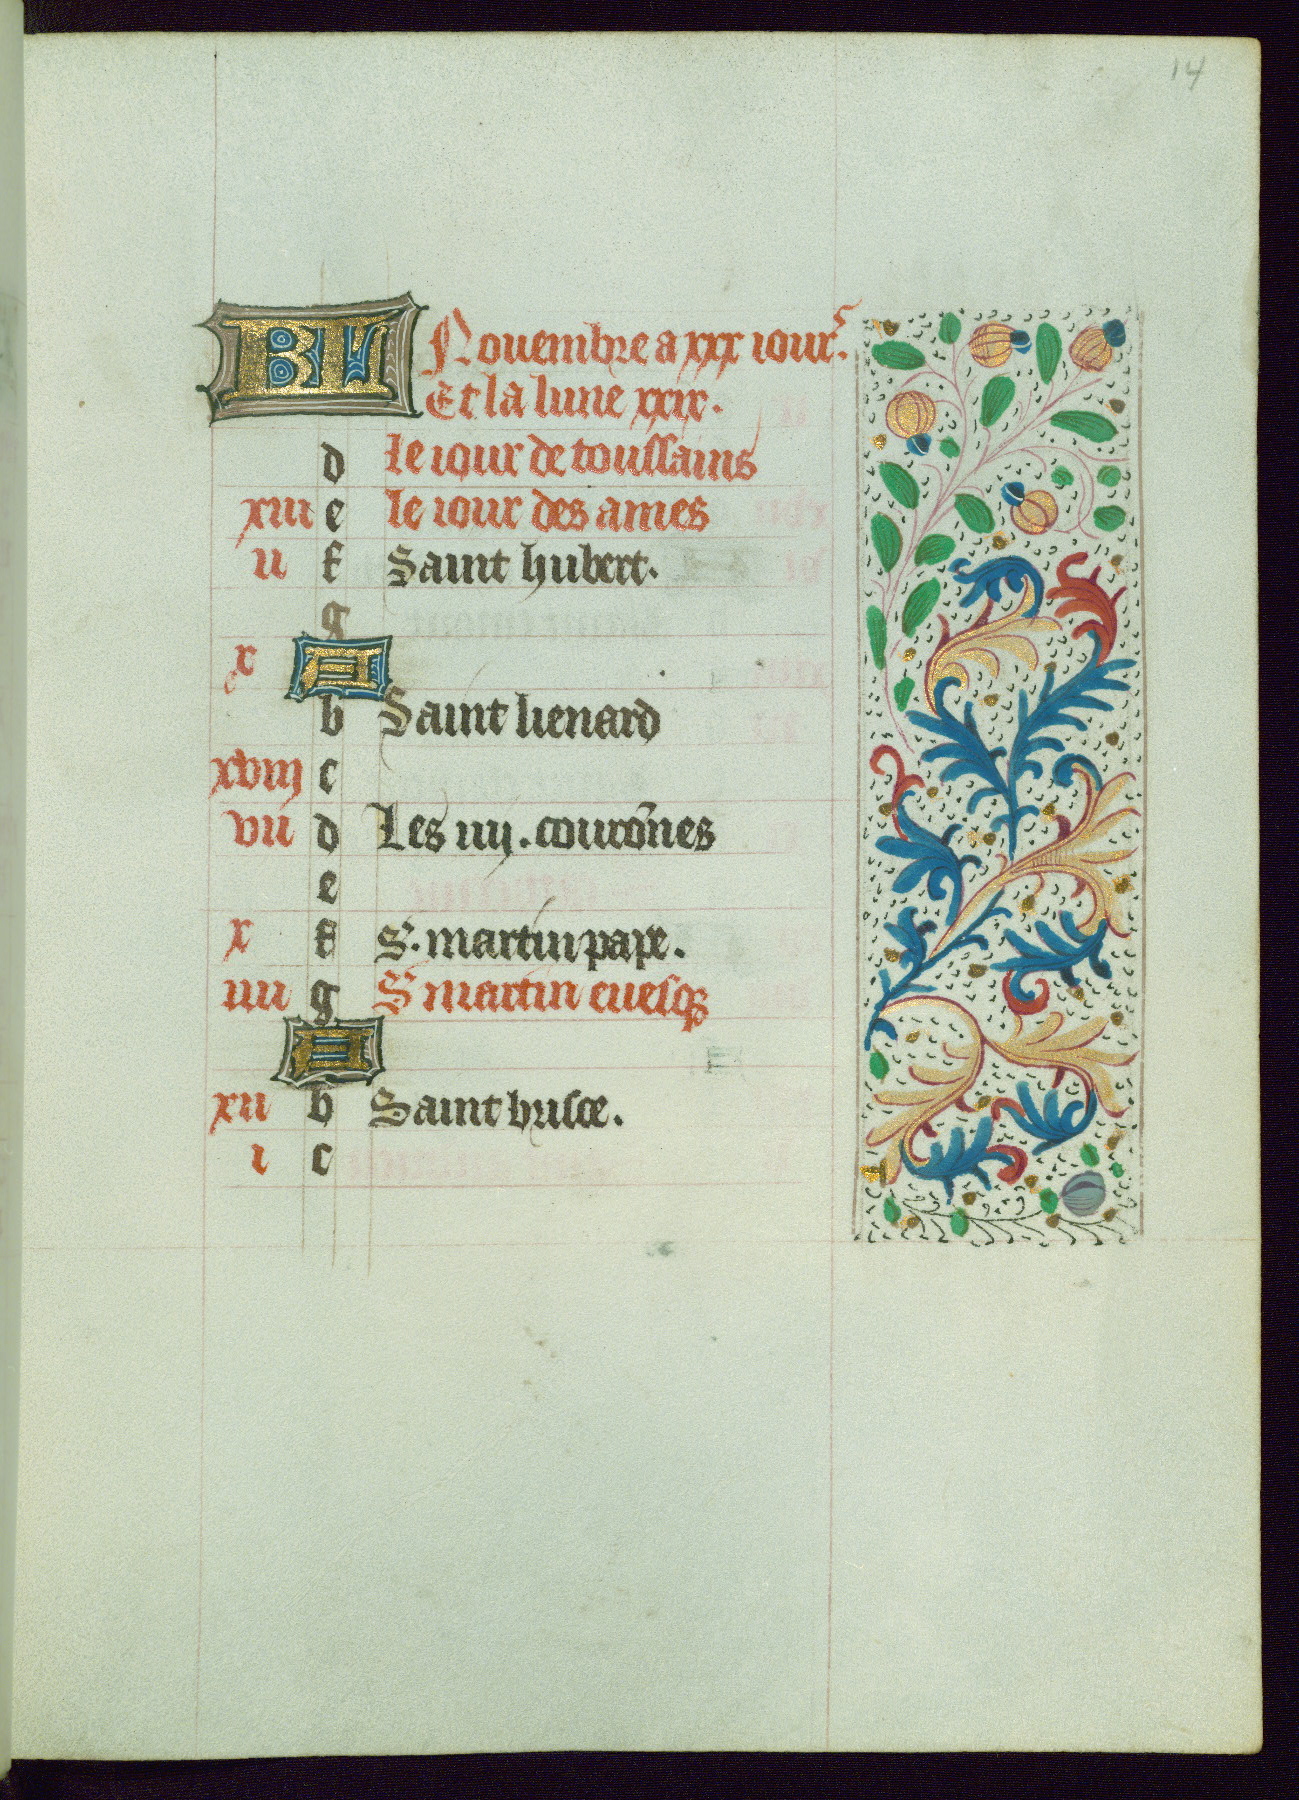 14
KL Nouembre a xxx iours.
Et la lune xxix.
d le iour de toussains
xiii e le iour des ames
ii f Saint hubert.
g
x A
b Saint lienard
xviii c
vii d Les iiij. couro̅nes
e
x f S. martin pape.
iiii g S martin euesq̅
A
xii b Saint brisce.
i c